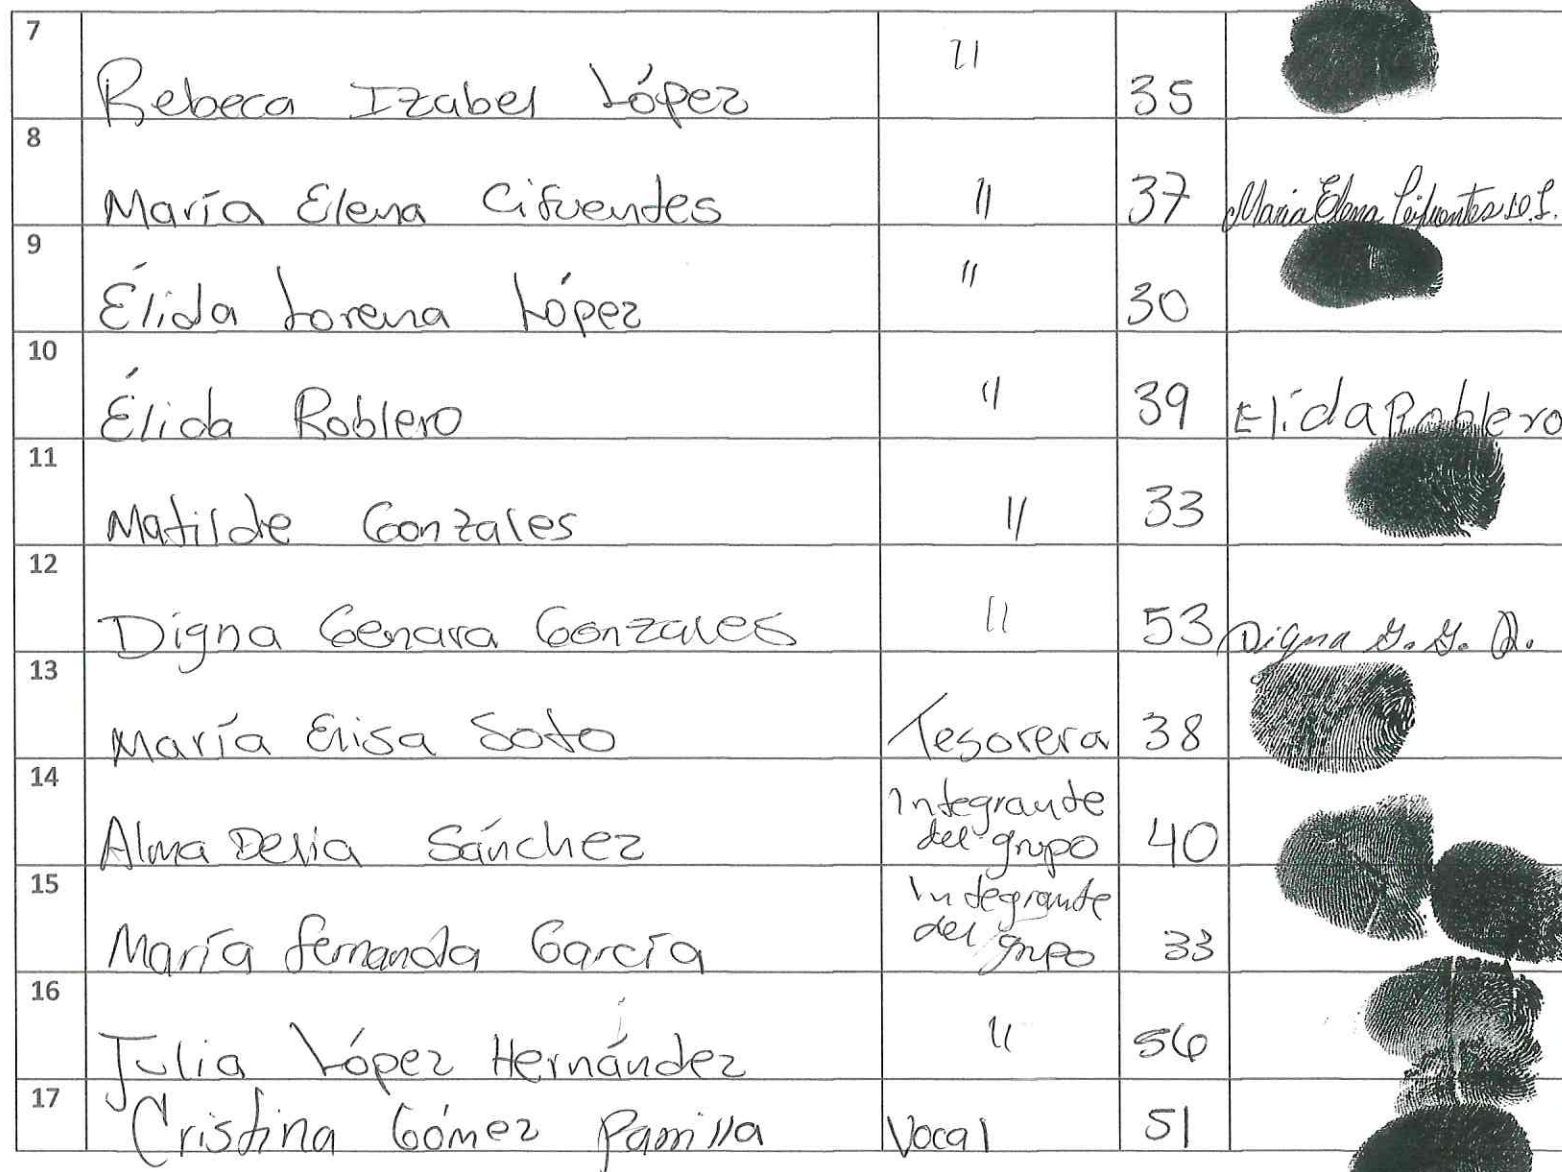 7
Rebeca Izabel López 11 35
8
María Elena Cifuentes 11 37 Maria Elena Cifuentes D.L.
9
Élida Lorena López 11 30
10
Élida Roblero 11 39 Elida Roblero
11
Matilde Gonzales 11 33
12
Digna Genara Gonzales 11 53 Digna G. G. R.
13
María Elisa Soto Tesorera 38
14
Alma Delia Sánchez Integrante del grupo 40
15
María Fernanda García Integrante del grupo 33
16
Julia López Hernández 11 56
17
Cristina Gómez Vocal 51